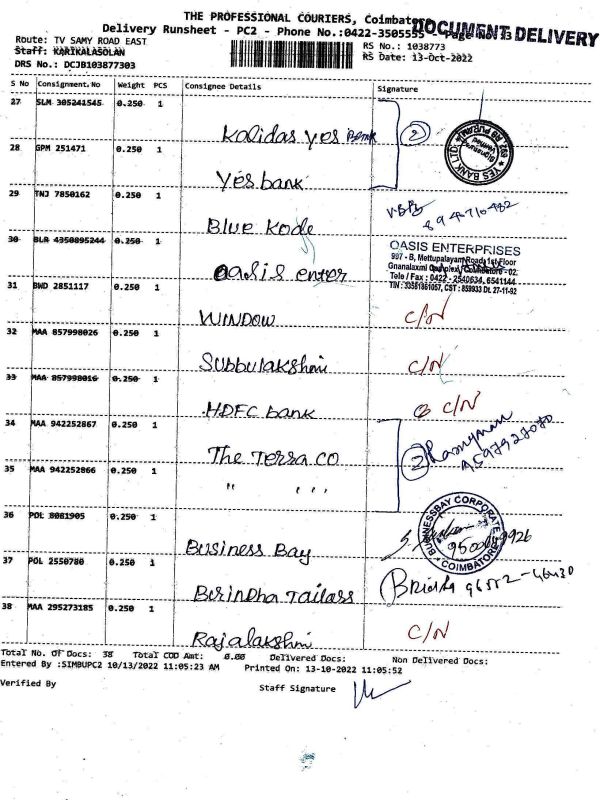 THE PROFESSIONAL COURIERS, Coimbatore
DOCUMENT DELIVERY
Delivery Runsheet - PC2 - Phone No.:0422-3505555 - Page No: 3
Route: TV SAMY ROAD EAST
RS No.: 1038773
Staff: KARIKALASOLAN
RS Date: 13-Oct-2022
DRS No.: DCJB103877303
S No Consignment.No Weight PCS Consignee Details Signature
27 SLM 305241545 0.250 1
Kalidas yes Bank
2
28 GPM 251471 0.250 1
Yes bank
YES BANK LTD.
29 TNJ 7850162 0.250 1
Blue Kode
30 BLR 4350895244 0.250 1
Oasis enter
OASIS ENTERPRISES
997 - B, Mettupalayam Road, 1st Floor
Gnanalaxmi Complex, Coimbatore - 02.
Tele / Fax : 0422 - 2540634, 6541144
31 BWD 2851117 0.250 1
WINDOW
C/N
32 MAA 857998026 0.250 1
Subbulakshmi
C/N
33 MAA 857998016 0.250 1
HDFC bank
C/N
34 MAA 942252867 0.250 1
The Terra co
2
35 MAA 942252866 0.250 1
" , , ,
36 POL 8081905 0.250 1
Business Bay
BUSINESSBAY CORPORATE
COIMBATORE
37 POL 2550780 0.250 1
Birindha Tailass
38 MAA 295273185 0.250 1
Rajalakshmi
C/N
Total No. Of Docs: 38 Total COD Amt: 0.00 Delivered Docs: Non Delivered Docs:
Entered By :SIMBUPC2 10/13/2022 11:05:23 AM Printed On: 13-10-2022 11:05:52
Verified By
Staff Signature